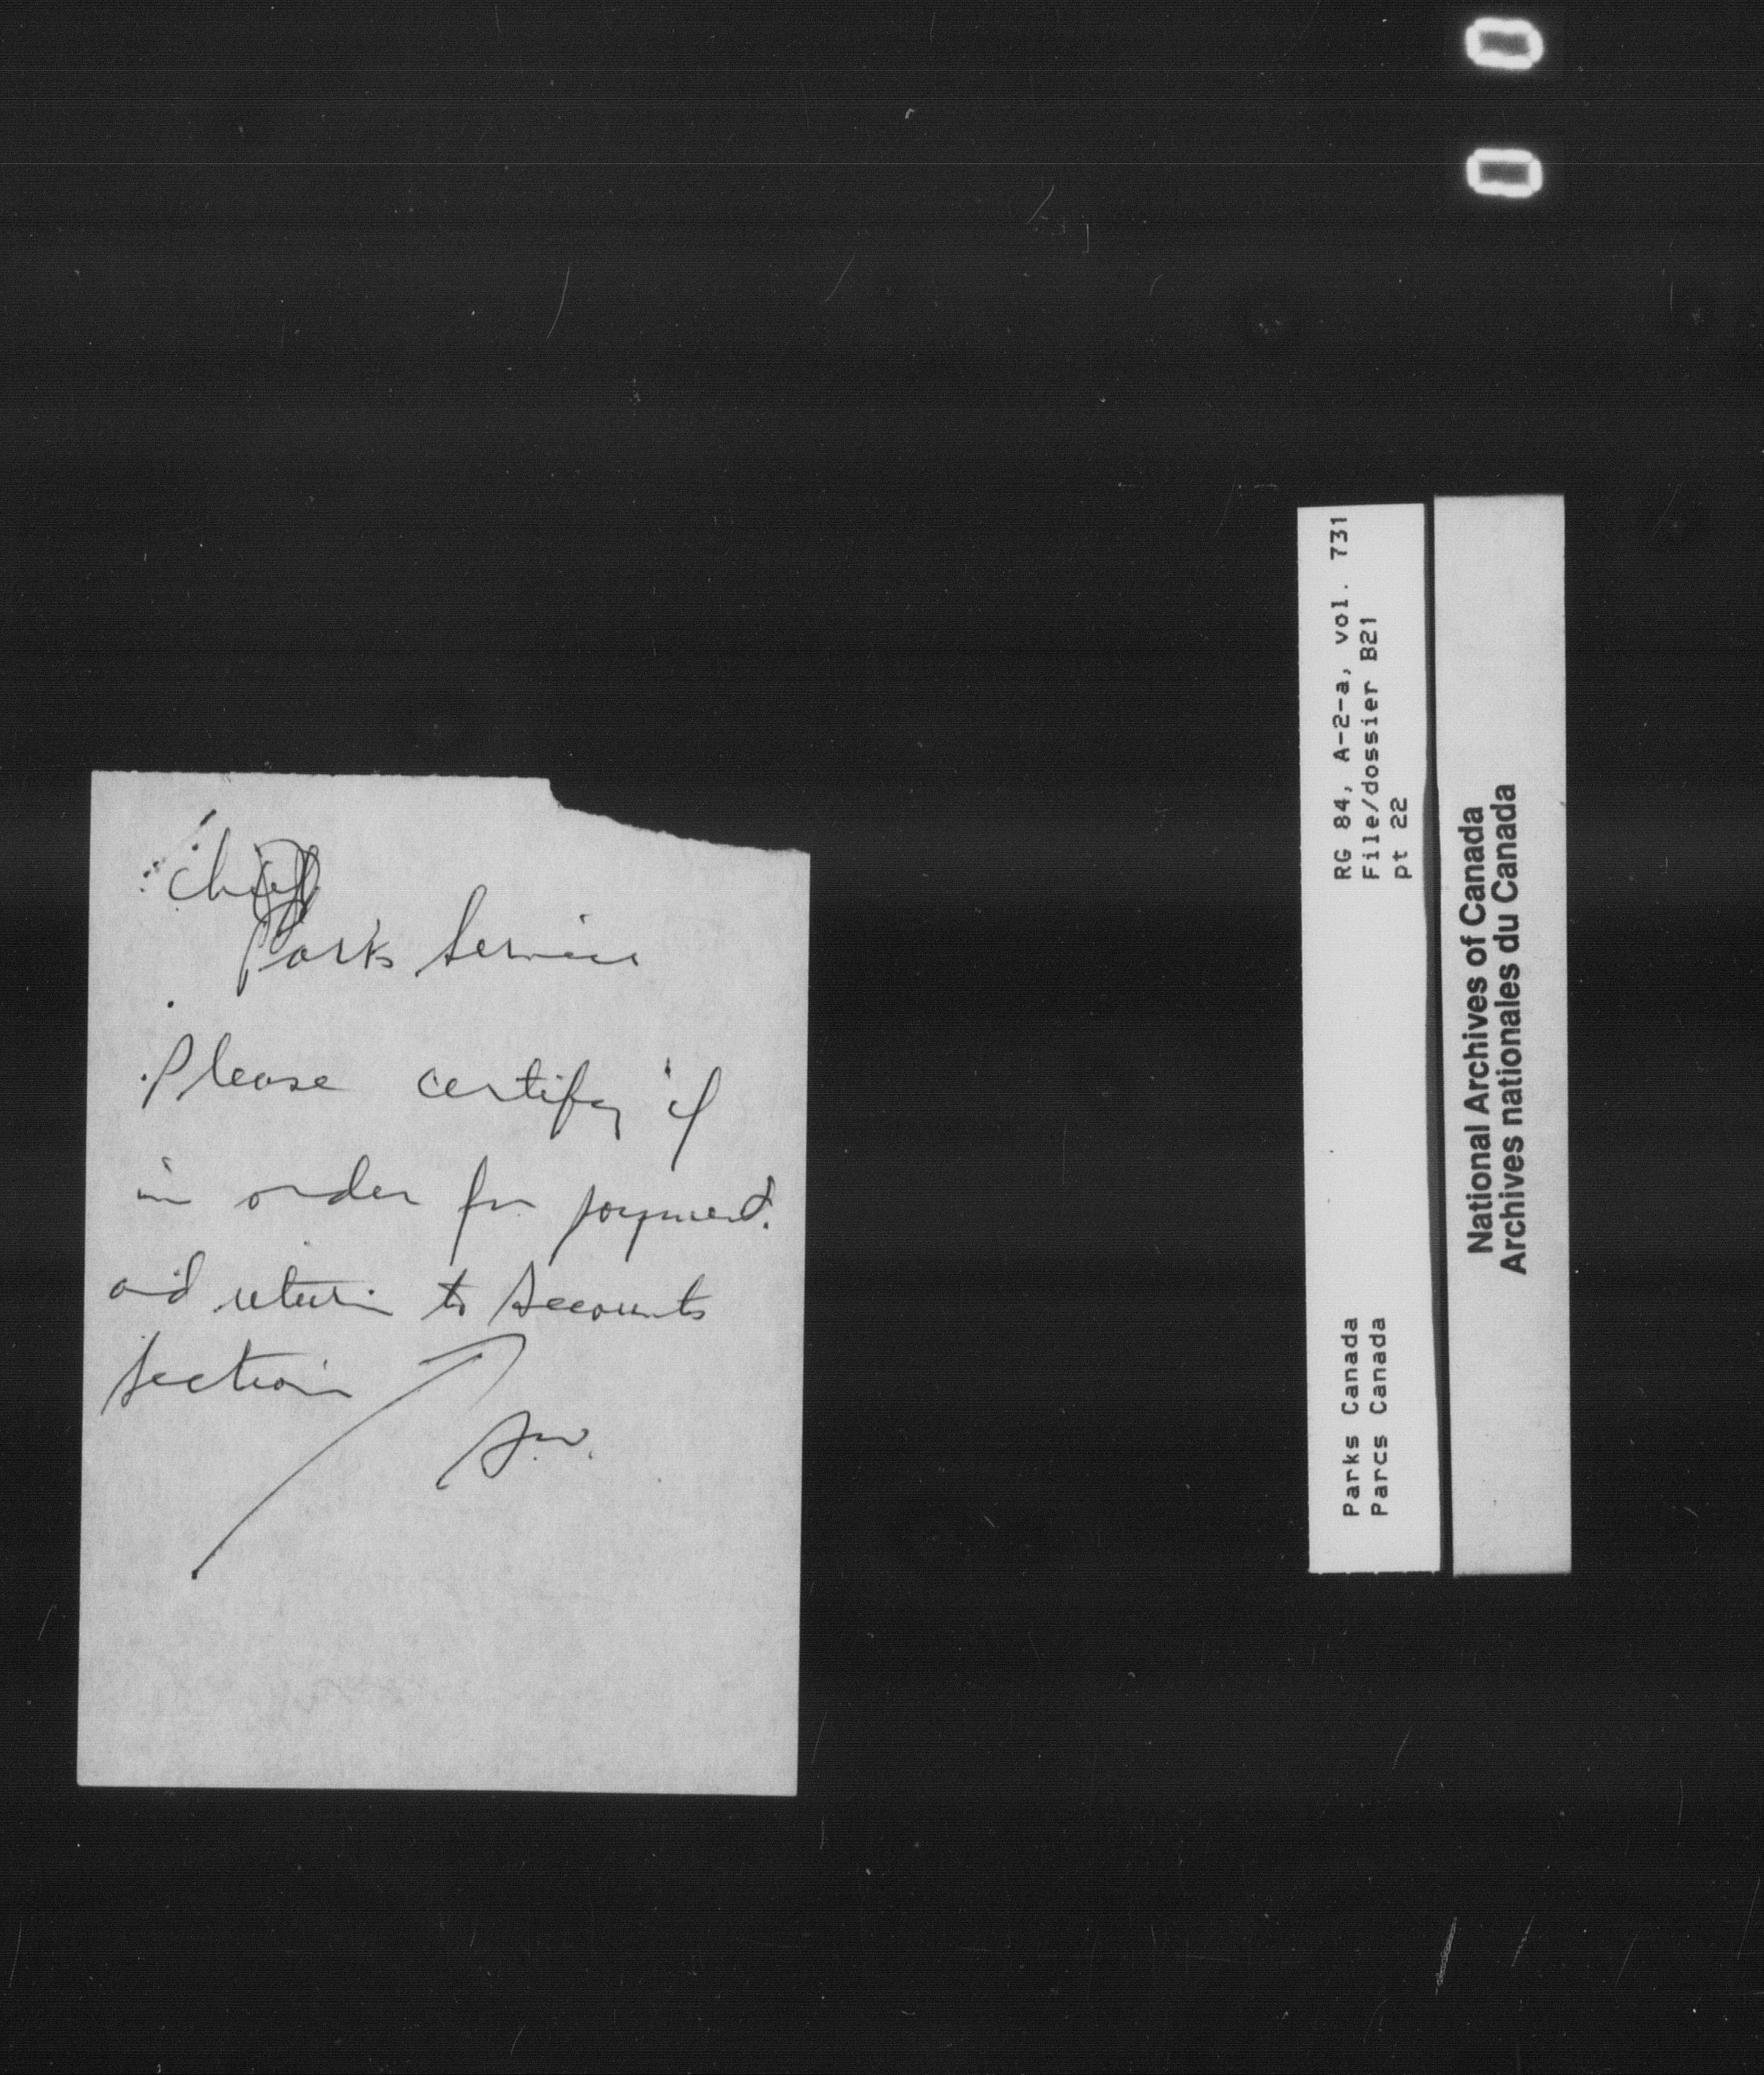 0 0
Chief
Parks Service
Please certify if
in order for payment.
and return to Accounts
Section
RG 84, A-2-a, vol. 731
File/dossier B21
pt 22
Parks Canada
Parcs Canada
National Archives of Canada
Archives nationales du Canada